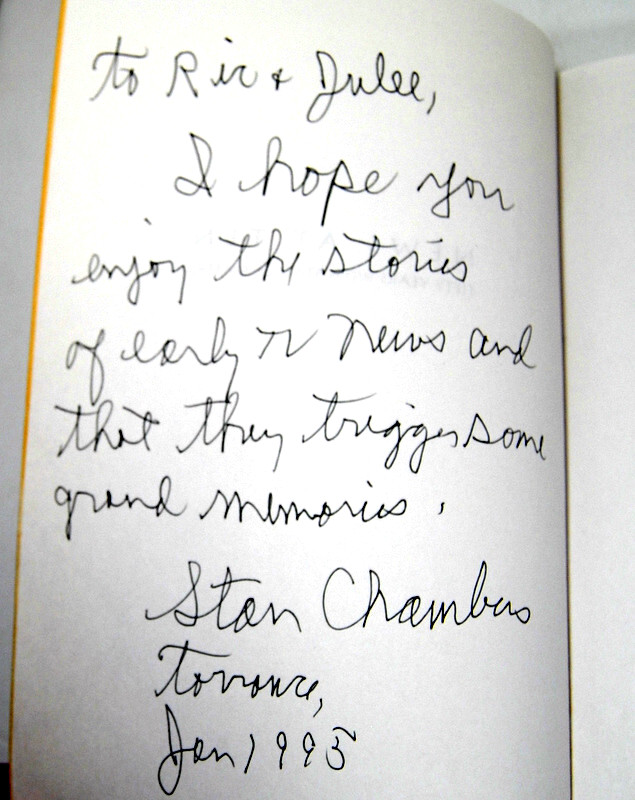 to Ric & Julee,
I hope you
enjoy the stories
of early TV news and
that they trigger some
grand memories.
Stan Chambers
Torrance,
Jan 1995